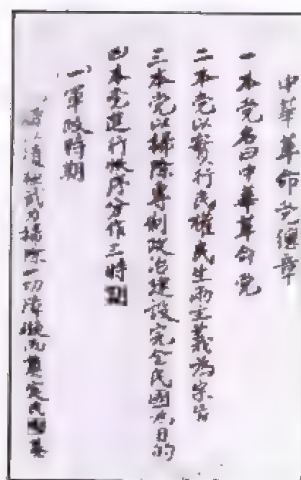 中華革命党總章
一本党名曰中華革命党
二本党以實行民權民生兩主義為宗旨
三本党以掃除專制政治建設完全民國為目的
四本党進行秩序分作三時期
一軍政時期
此期以積極武力掃除一切障礙而奠定民國基